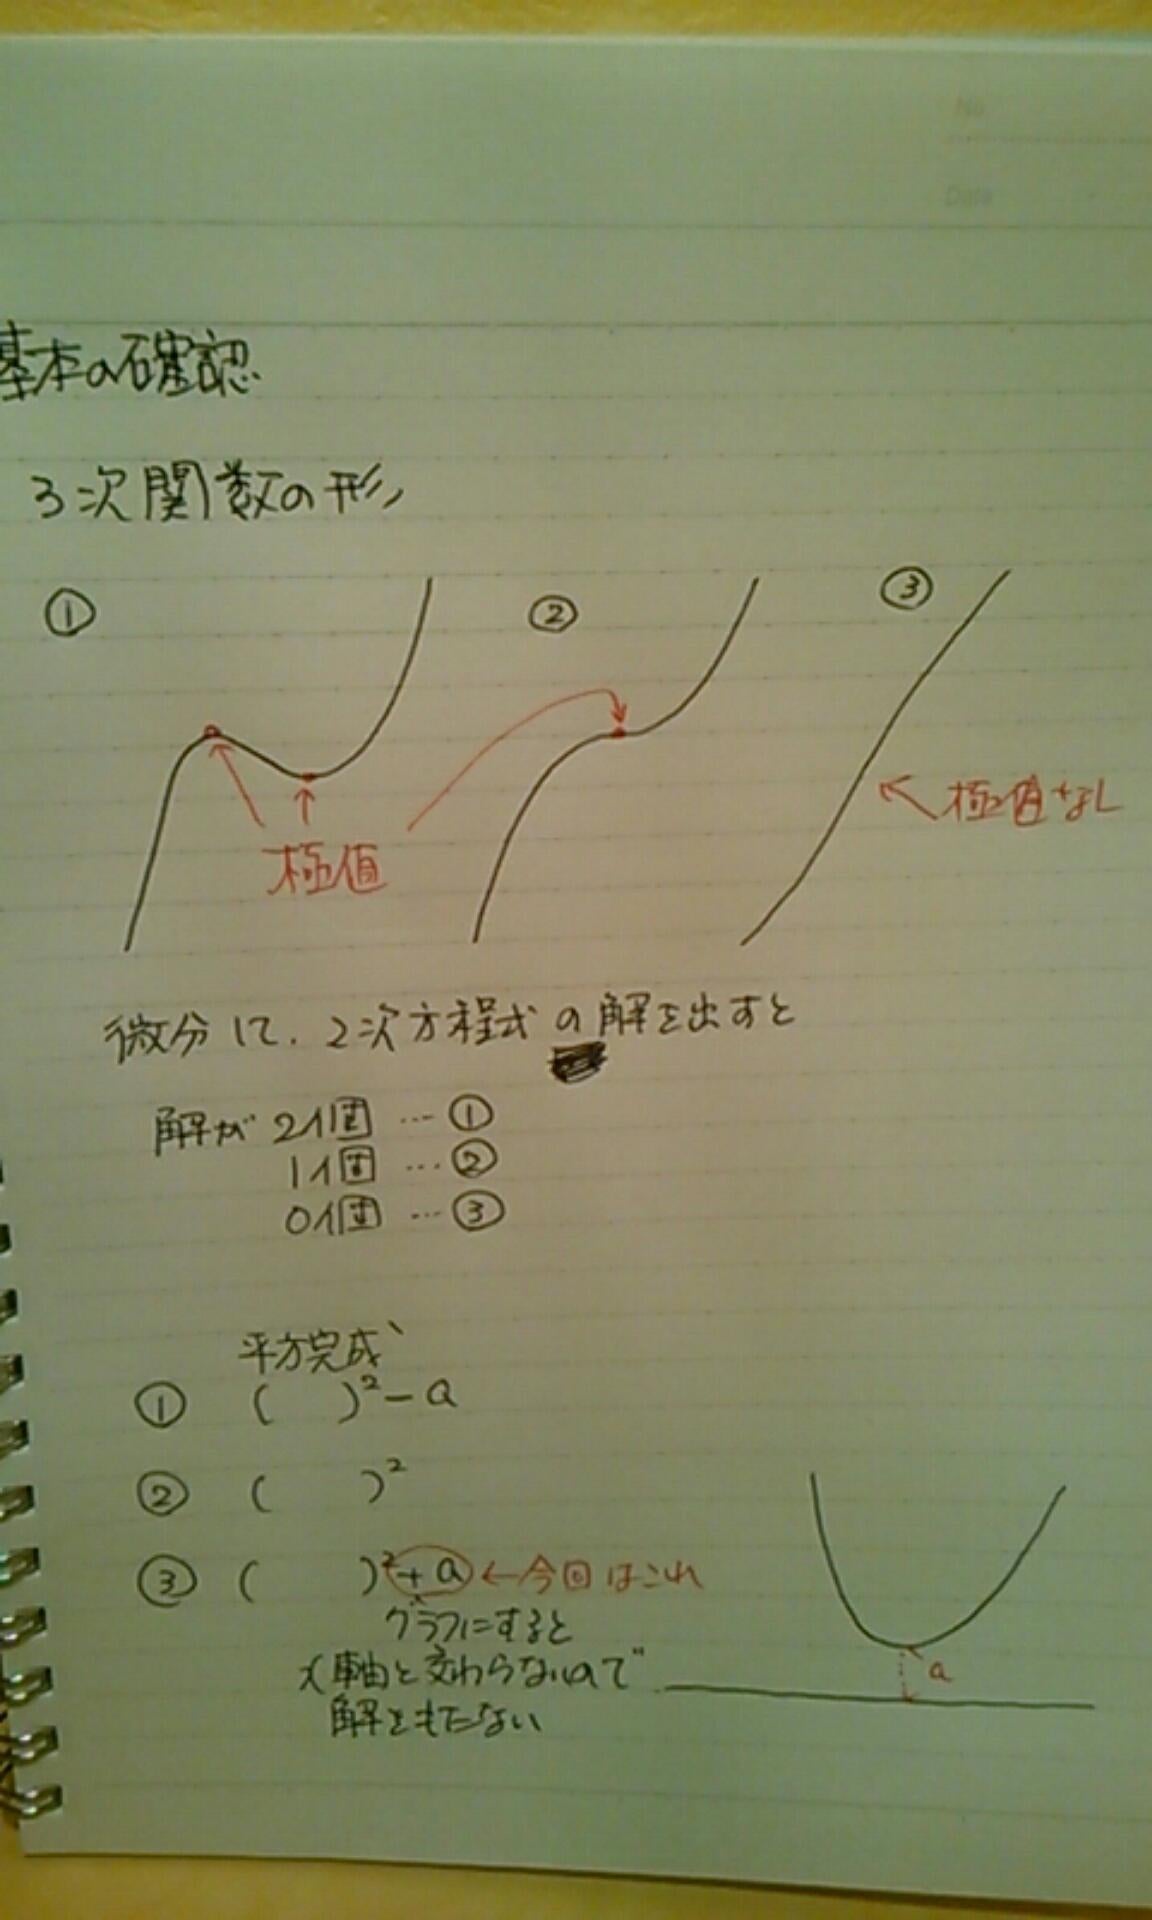 No
Date
基本の確認
3次関数の形
① ② ③
極値
極値なし
微分して、2次方程式の解を出すと
解が 2個 … ①
1個 … ②
0個 … ③
平方完成
① ( )² - a
② ( )²
③ ( )² + a ← 今回はこれ
グラフにすると
x軸と交わらないので
解をもたない
a